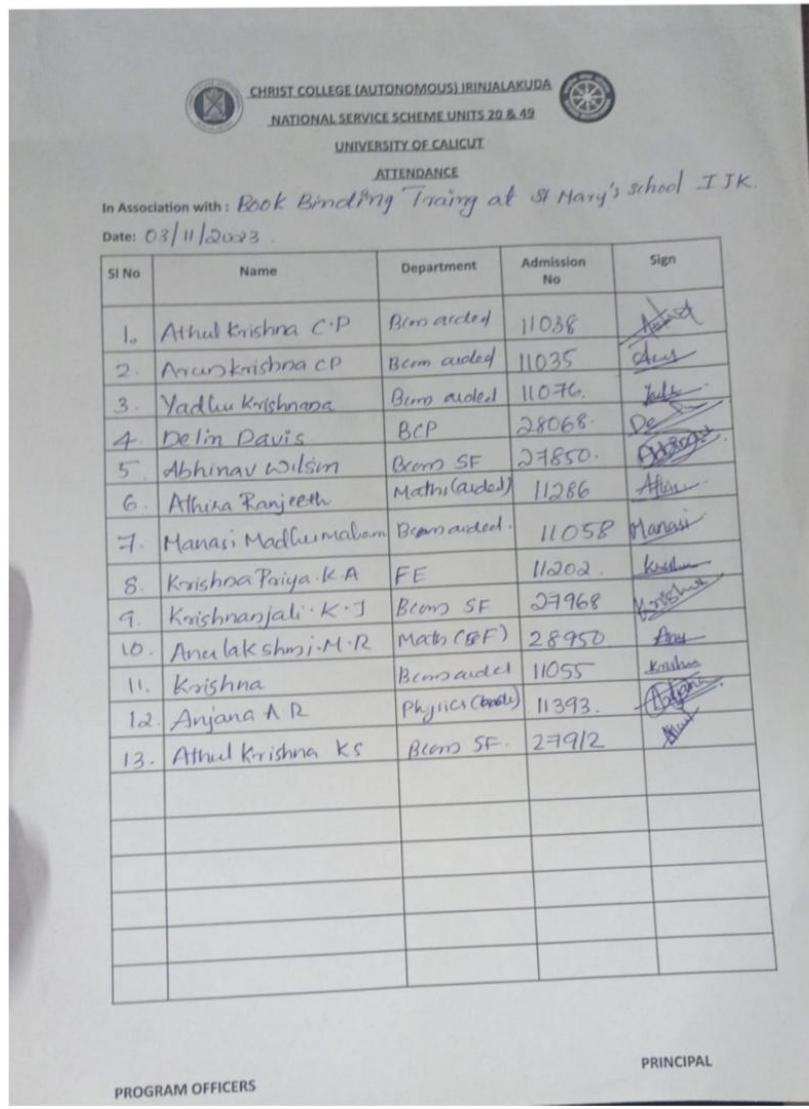 CHRIST COLLEGE (AUTONOMOUS) IRINJALAKUDA
NATIONAL SERVICE SCHEME UNITS 20 & 49
UNIVERSITY OF CALICUT
ATTENDANCE
In Association with : Book Binding Traing at St Mary's school IJK.
Date: 03/11/2023.
Sl No Name Department Admission No Sign
1. Athul Krishna C.P Bcom aided 11038
2. Arun krishna CP Bcom aided 11035
3. Yadhu Krishnana Bcom aided 11076.
4. Delin Davis BCP 28068.
5. Abhinav Wilson Bcom SF 27850.
6. Athira Ranjeeth Maths (aided) 11286
7. Manasi Bcom aided. 11058 Manasi
8. Krishna Priya. K A FE 11202.
9. Krishnanjali. K. J Bcom SF 27968 Krishna
10. Anulakshmi. M. R Math (SF) 28950 Anu
11. Krishna Bcom aided 11055 Krishna
12. Anjana A R Physics 11393. Anjana
13. Athul Krishna KS Bcom SF. 27912
PROGRAM OFFICERS PRINCIPAL